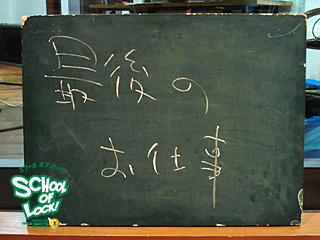 最後の
お仕事
SCHOOL
OF
LOCK!